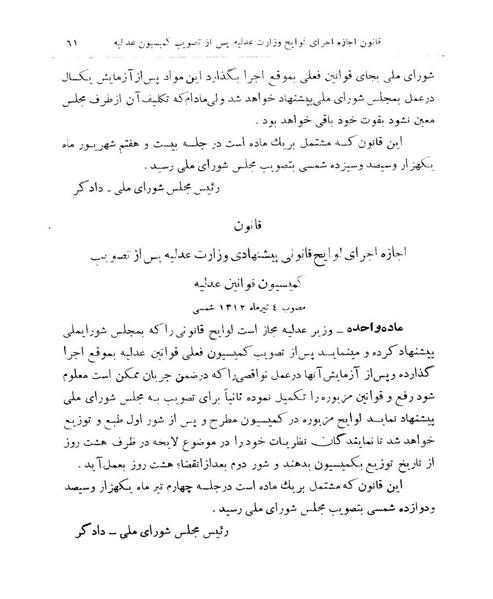 قانون اجازه اجرای لوایح وزارت عدلیه پس از تصویب کمیسیون عدلیه ٦١
شورای ملی بجای قوانین فعلی بموقع اجرا بگذارد این مواد پس از آزمایش یکسال
در عمل بمجلس شورای ملی پیشنهاد خواهد شد ولی مادام که تکلیف آن از طرف مجلس
معین نشود بقوت خود باقی خواهد بود .
این قانون که مشتمل بریك ماده است در جلسه بیست و هفتم شهریور ماه
یکهزار و سیصد و سیزده شمسی بتصویب مجلس شورای ملی رسید .
رئیس مجلس شورای ملی ـ دادگر
قانون
اجازه اجرای لوایح قانونی پیشنهادی وزارت عدلیه پس از تصویب
کمیسیون قوانین عدلیه
مصوب ٤ تیر ماه ١٣١٢ شمسی
ماده واحده ـ وزیر عدلیه مجاز است لوایح قانونی را که بمجلس شورایملی
پیشنهاد کرده و مینماید پس از تصویب کمیسیون فعلی قوانین عدلیه بموقع اجرا
گذارده و پس از آزمایش آنها در عمل نواقصی را که در ضمن جریان ممکن است معلوم
شود رفع و قوانین مزبوره را تکمیل نموده ثانیاً برای تصویب به مجلس شورای ملی
پیشنهاد نماید لوایح مزبوره در کمیسیون مطرح و پس از شور اول طبع و توزیع
خواهد شد تا نمایندگان نظریات خود را در موضوع لایحه در ظرف هشت روز
از تاریخ توزیع بکمیسیون بدهند و شور دوم بعد از انقضاء هشت روز بعمل آید .
این قانون که مشتمل بریك ماده است در جلسه چهارم تیر ماه یکهزار و سیصد
و دوازده شمسی بتصویب مجلس شورای ملی رسید .
رئیس مجلس شورای ملی ـ دادگر